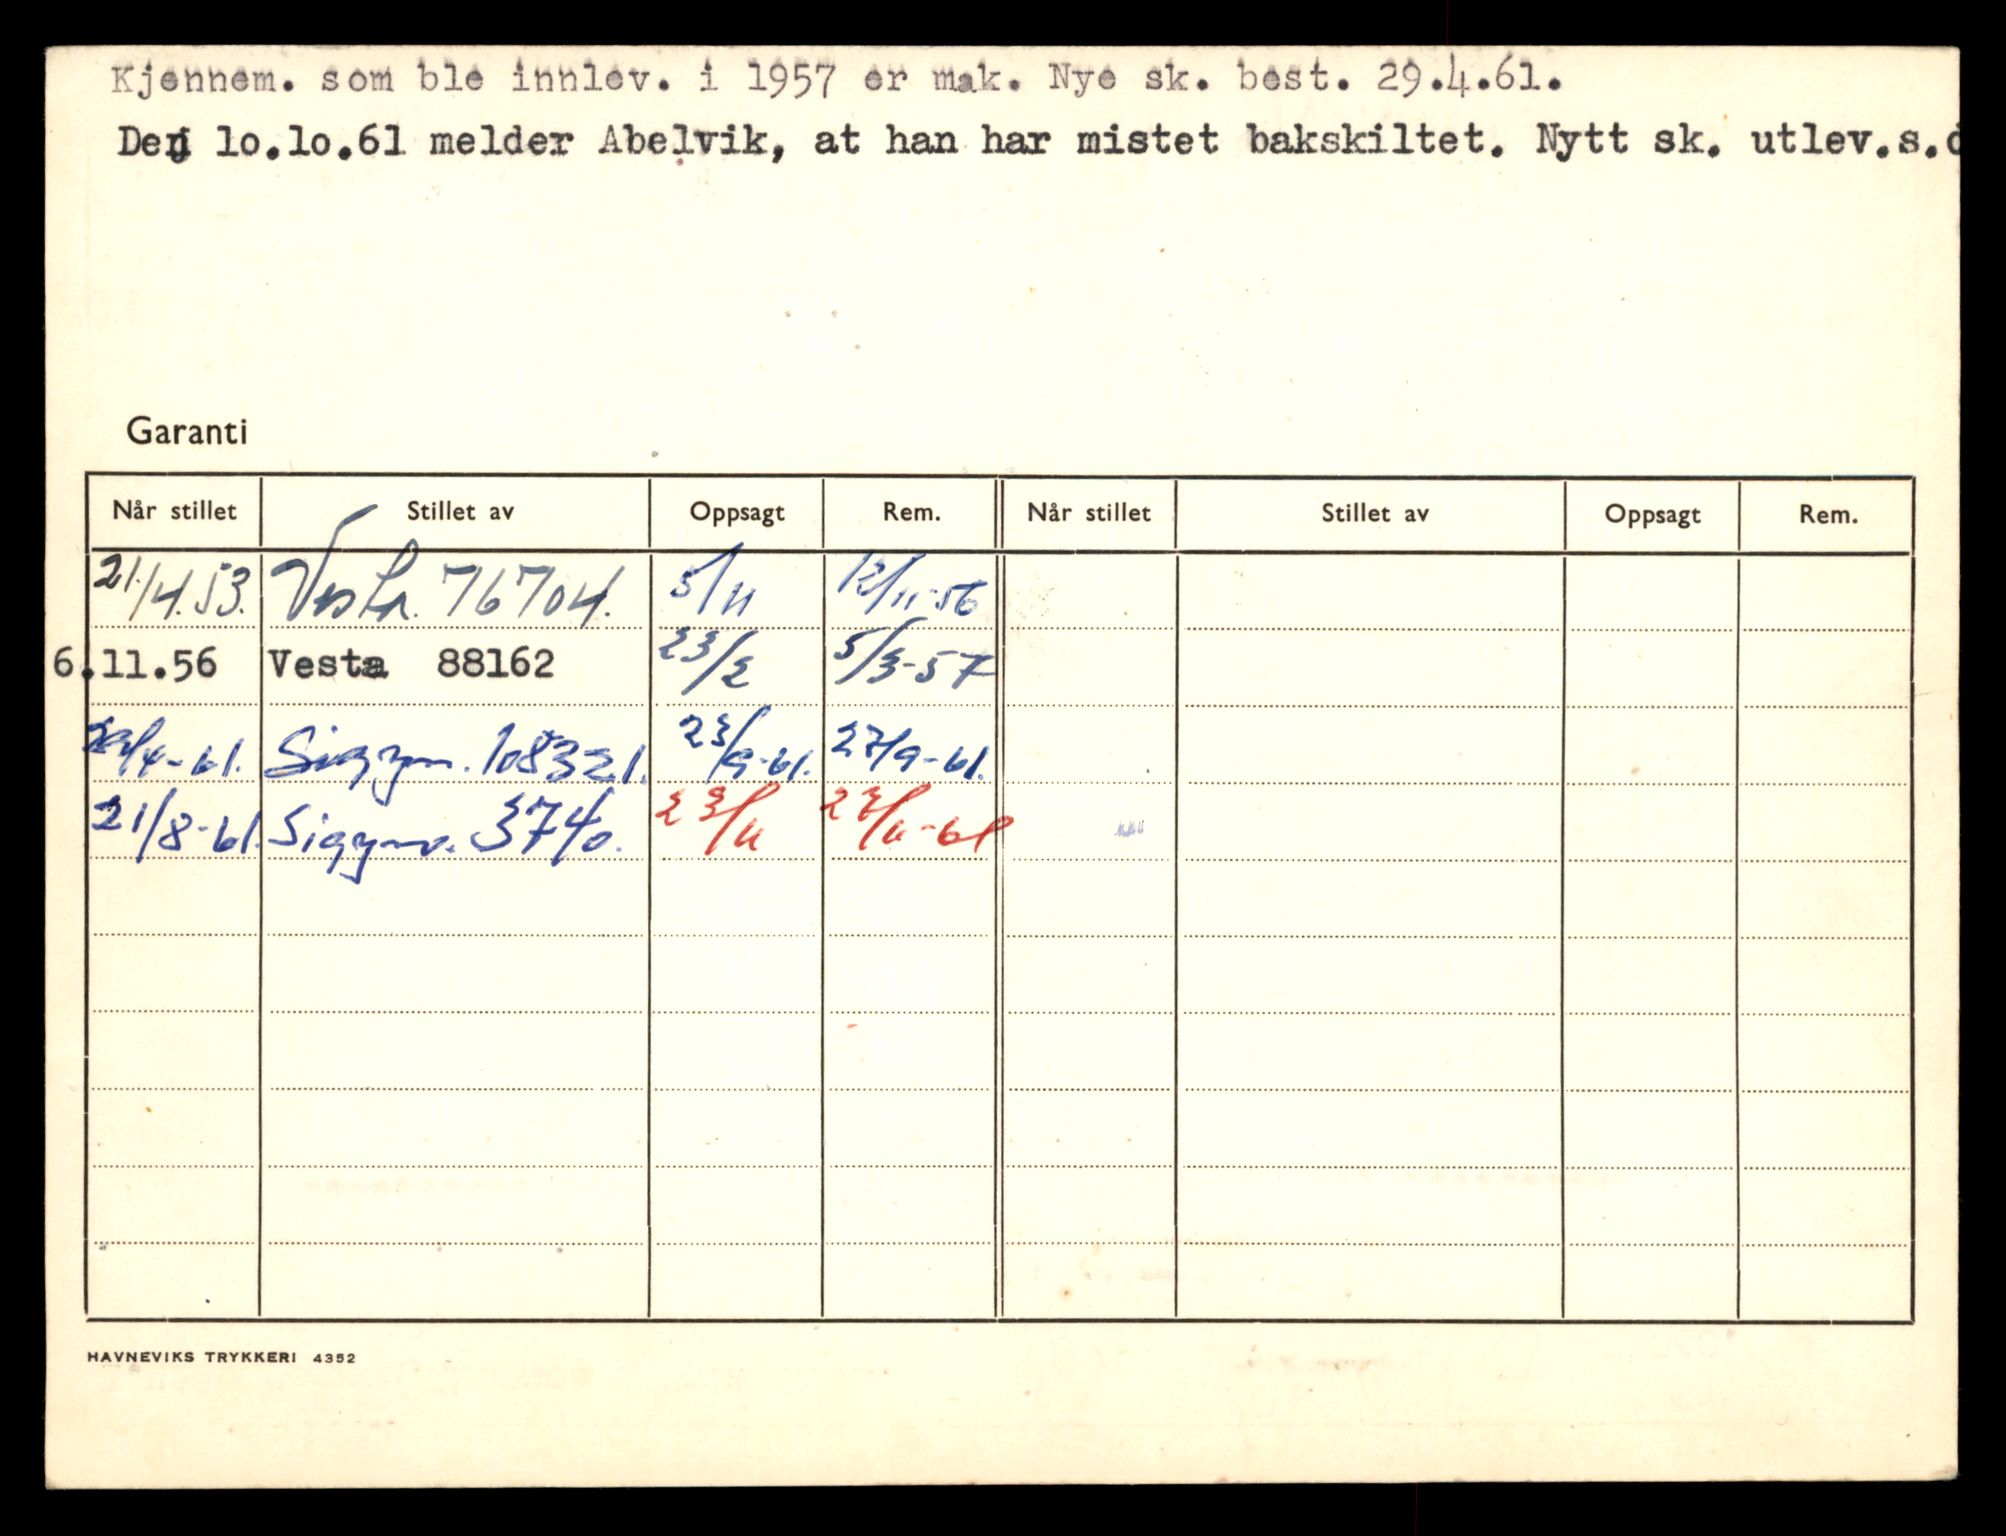 Kjennem. som ble innlev. i 1957 er mak. Nye sk. best. 29.4.61.
Den 10.10.61 melder Abelvik, at han har mistet bakskiltet. Nytt sk. utlev.s.d
Garanti
Når stillet Stillet av Oppsagt Rem. Når stillet Stillet av Oppsagt Rem.
21./4.53. Vesta. 76704. 5/11 12/11-56
6.11.56 Vesta 88162 23/2 5/3-57
29/4-61. Sigyn. 108321. 23/9-61. 27/9-61.
21/8-61. 3740. 23/11 27/11-61
HAVNEVIKS TRYKKERI 4352